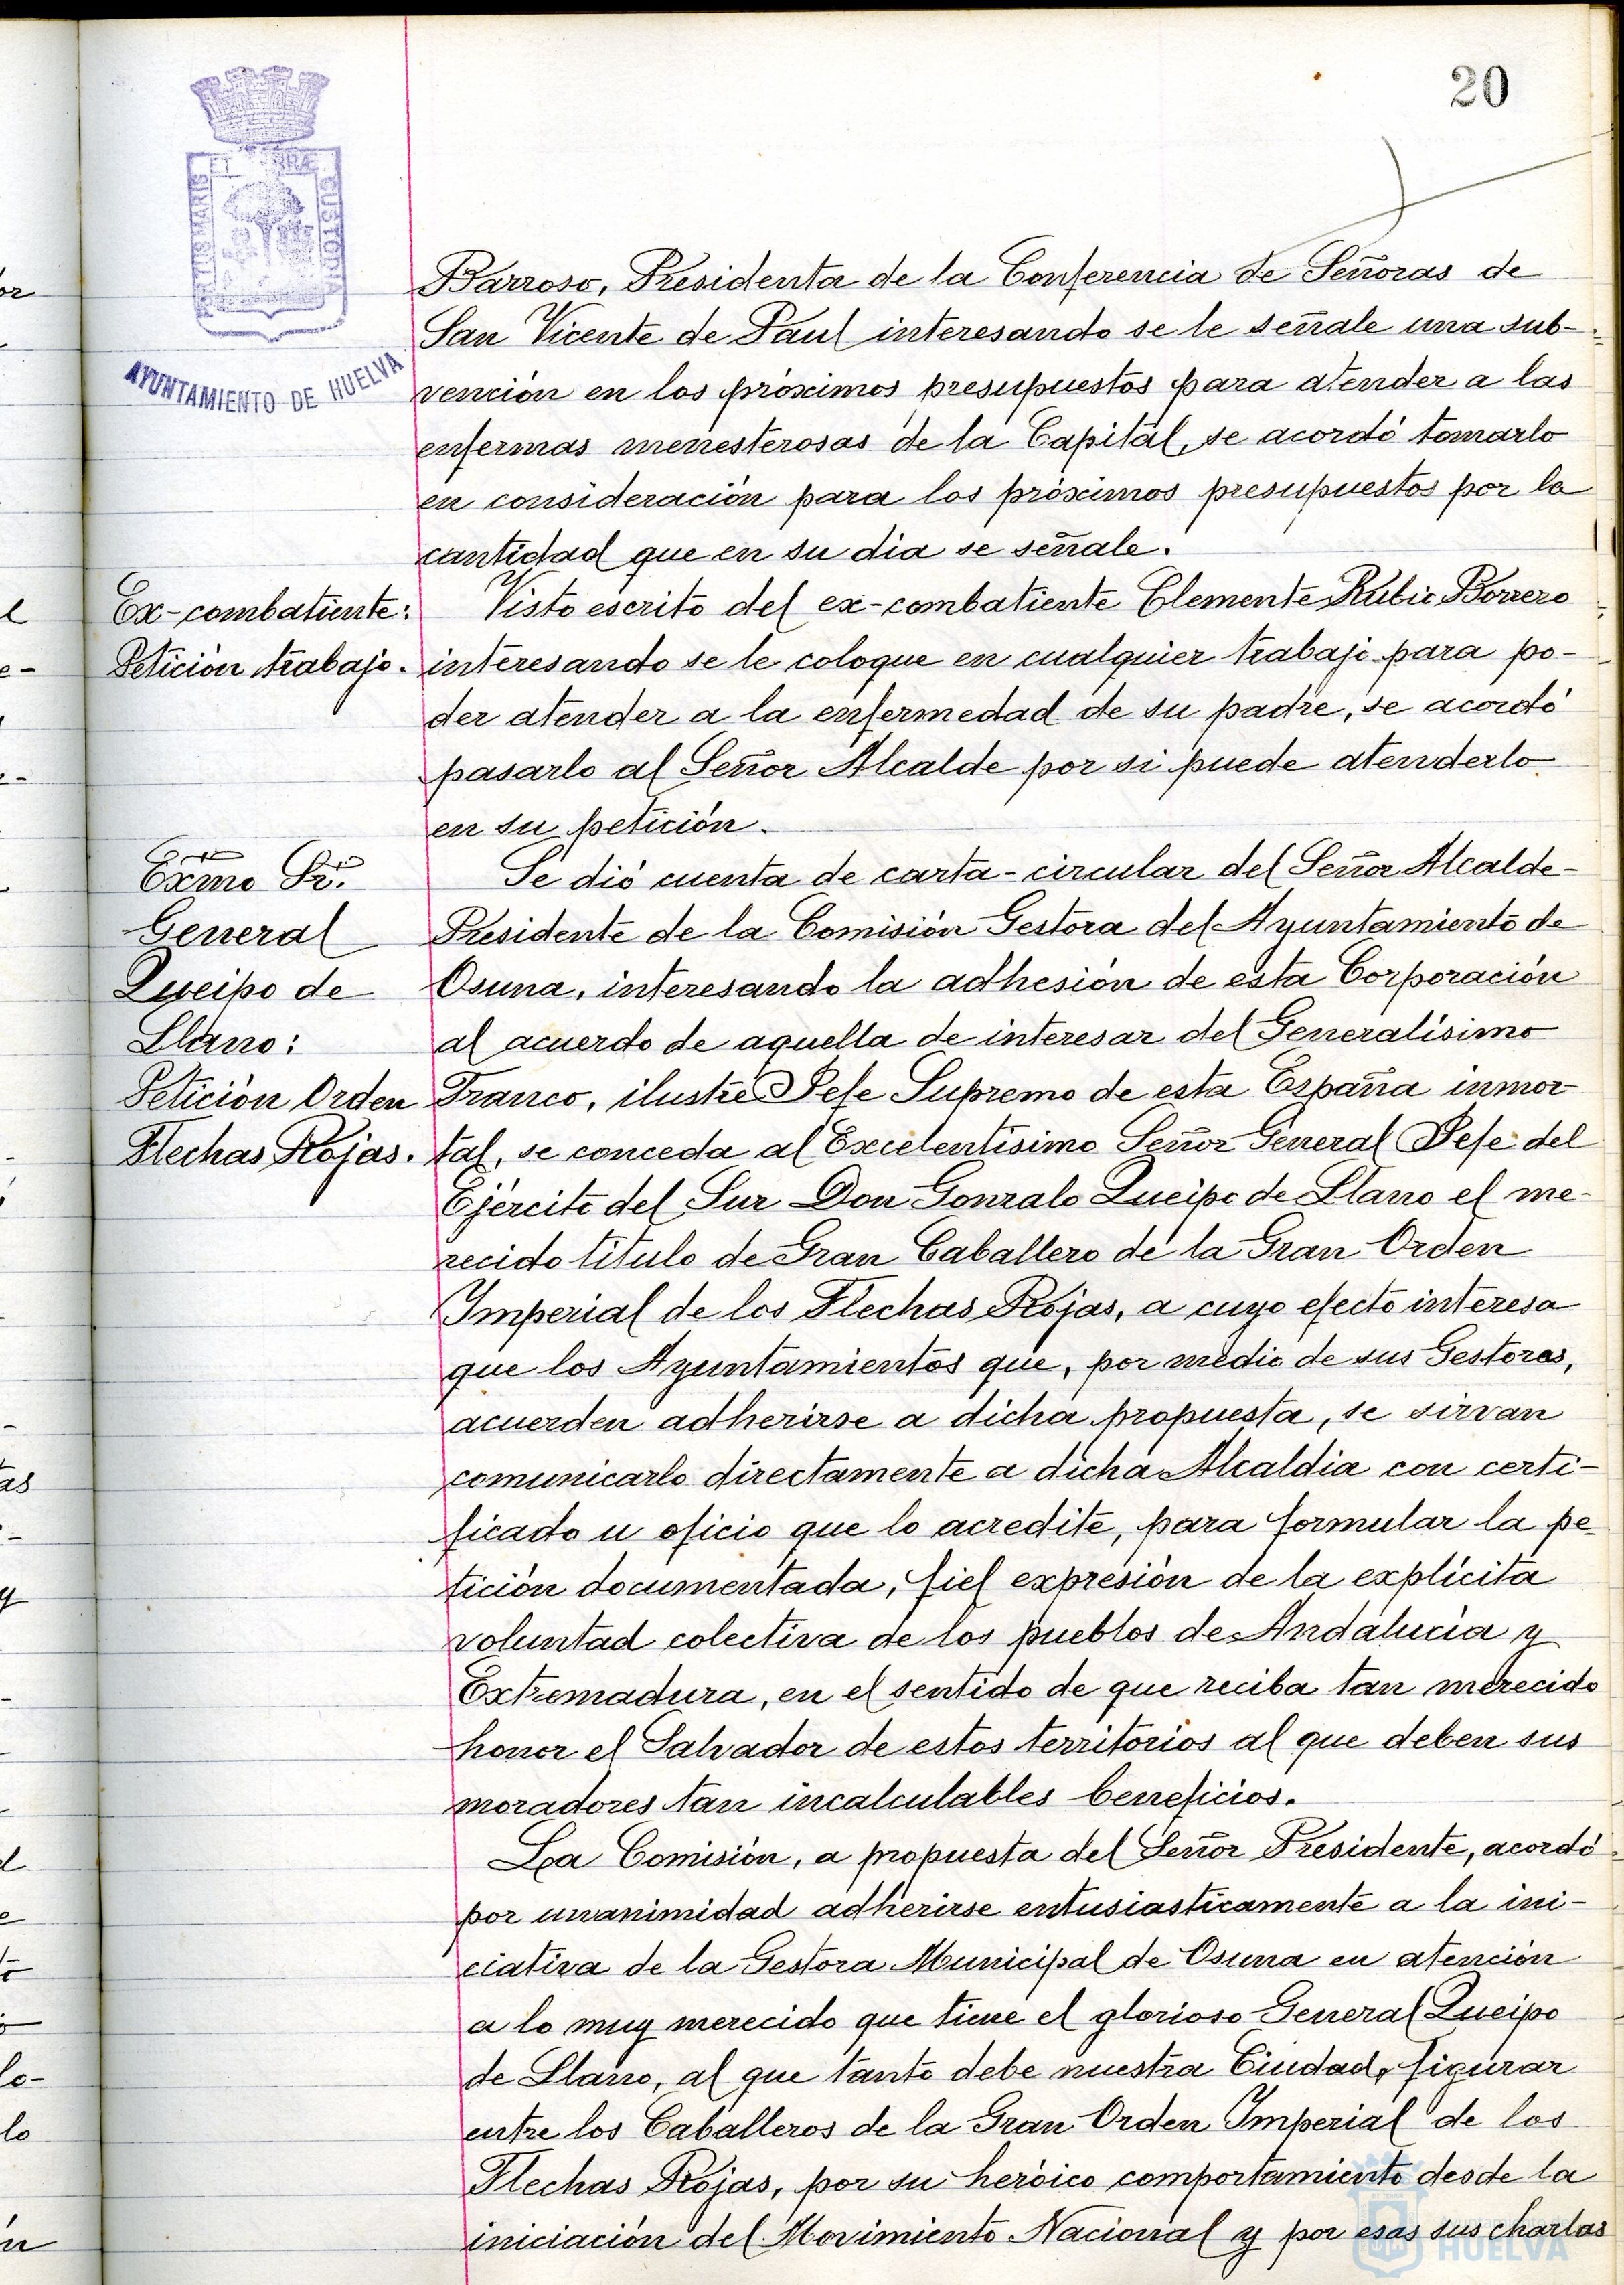 20
PORTUS MARIS ET TERRÆ CUSTODIA
AYUNTAMIENTO DE HUELVA
Barroso, Presidenta de la Conferencia de Señoras de
San Vicente de Paul interesando se le señale una sub-
vención en los próximos presupuestos para atender a las
enfermas menesterosas de la Capital, se acordó tomarlo
en consideración para los próximos presupuestos por la
cantidad que en su dia se señale.
Ex-combatiente:
Petición trabajo.
Visto escrito del ex-combatiente Clemente Rubio Borrero
interesando se le coloque en cualquier trabajo para po-
der atender a la enfermedad de su padre, se acordó
pasarlo al Señor Alcalde por si puede atenderlo
en su petición.
Excmo Sr.
General
Queipo de
Llano:
Petición Orden
Flechas Rojas.
Se dió cuenta de carta-circular del Señor Alcalde-
Presidente de la Comisión Gestora del Ayuntamiento de
Osuna, interesando la adhesión de esta Corporación
al acuerdo de aquella de interesar del Generalísimo
Franco, ilustre Jefe Supremo de esta España inmor-
tal, se conceda al Excelentísimo Señor General Jefe del
Ejército del Sur Don Gonzalo Queipo de Llano el me-
recido título de Gran Caballero de la Gran Orden
Imperial de los Flechas Rojas, a cuyo efecto interesa
que los Ayuntamientos que, por medio de sus Gestoras,
acuerden adherirse a dicha propuesta, se sirvan
comunicarlo directamente a dicha Alcaldia con certi-
ficado u oficio que lo acredite, para formular la pe-
tición documentada, fiel expresión de la explícita
voluntad colectiva de los pueblos de Andalucía y
Extremadura, en el sentido de que reciba tan merecido
honor el Salvador de estos territorios al que deben sus
moradores tan incalculables beneficios.
La Comisión, a propuesta del Señor Presidente, acordó
por unanimidad adherirse entusiasticamente a la ini-
ciativa de la Gestora Municipal de Osuna en atención
a lo muy merecido que tiene el glorioso General Queipo
de Llano, al que tanto debe nuestra Ciudad, figurar
entre los Caballeros de la Gran Orden Imperial de los
Flechas Rojas, por su heróico comportamiento desde la
iniciación del Movimiento Nacional y por esas sus charlas
HUELVA